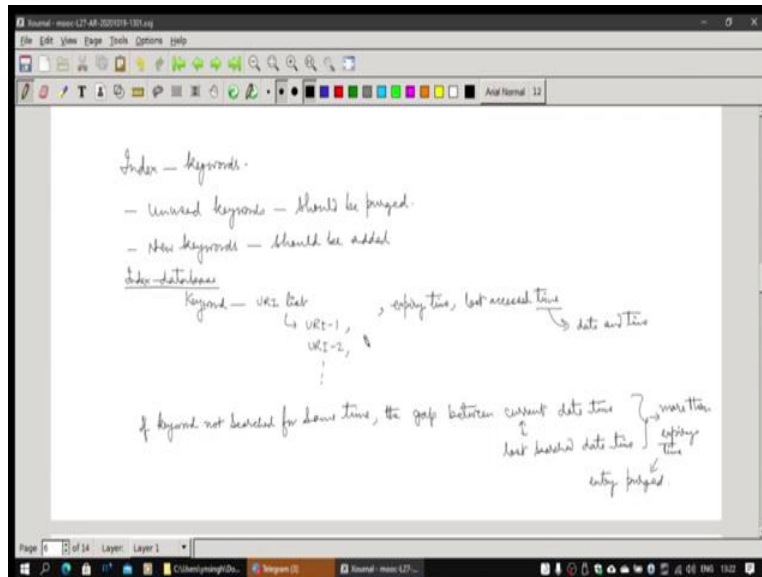 Xournal - mooc-L27-AR-20201019-1301.xoj
File Edit View Page Tools Options Help
Arial Normal 12
Index — keywords.
— Unused keywords — should be purged.
— New keywords — should be added
Index-database
Keyword — URI list , expiry time, last accessed time
URI-1, date and time
URI-2,
If keyword not searched for some time, the gap between current date time more than
last searched date time expiry
time
entry purged.
Page 6 of 14 Layer: Layer 1
C:\Users\ynsingh\Do... Telegram (3) Xournal - mooc-L27-... ENG 13:22